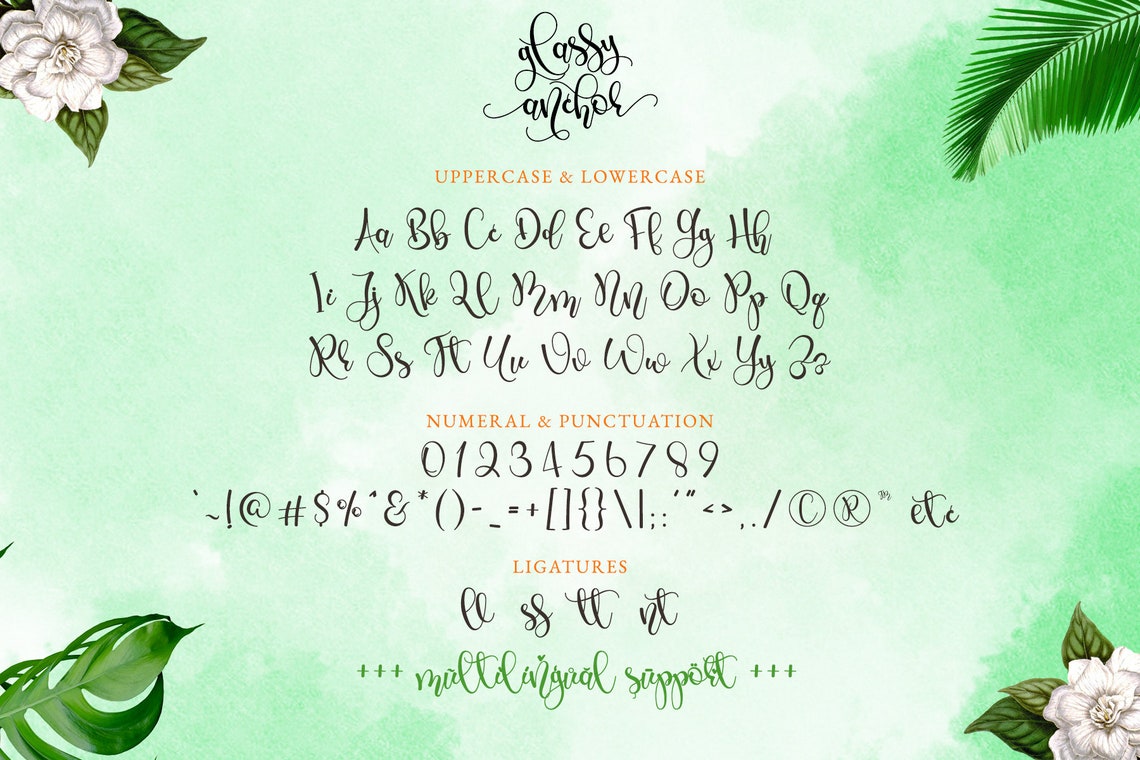 glassy
anchor
UPPERCASE & LOWERCASE
Aa Bb Cc Dd Ee Ff Gg Hh
Ii Jj Kk Ll Mm Nn Oo Pp Qq
Rr Ss Tt Uu Vv Ww Xx Yy Zz
NUMERAL & PUNCTUATION
0123456789
`~!@#$%^&*()-_=+[]{}\|;:'"<>,./©®™ etc
LIGATURES
ll ss tt nt
+++ mūltilingüál şūppört +++